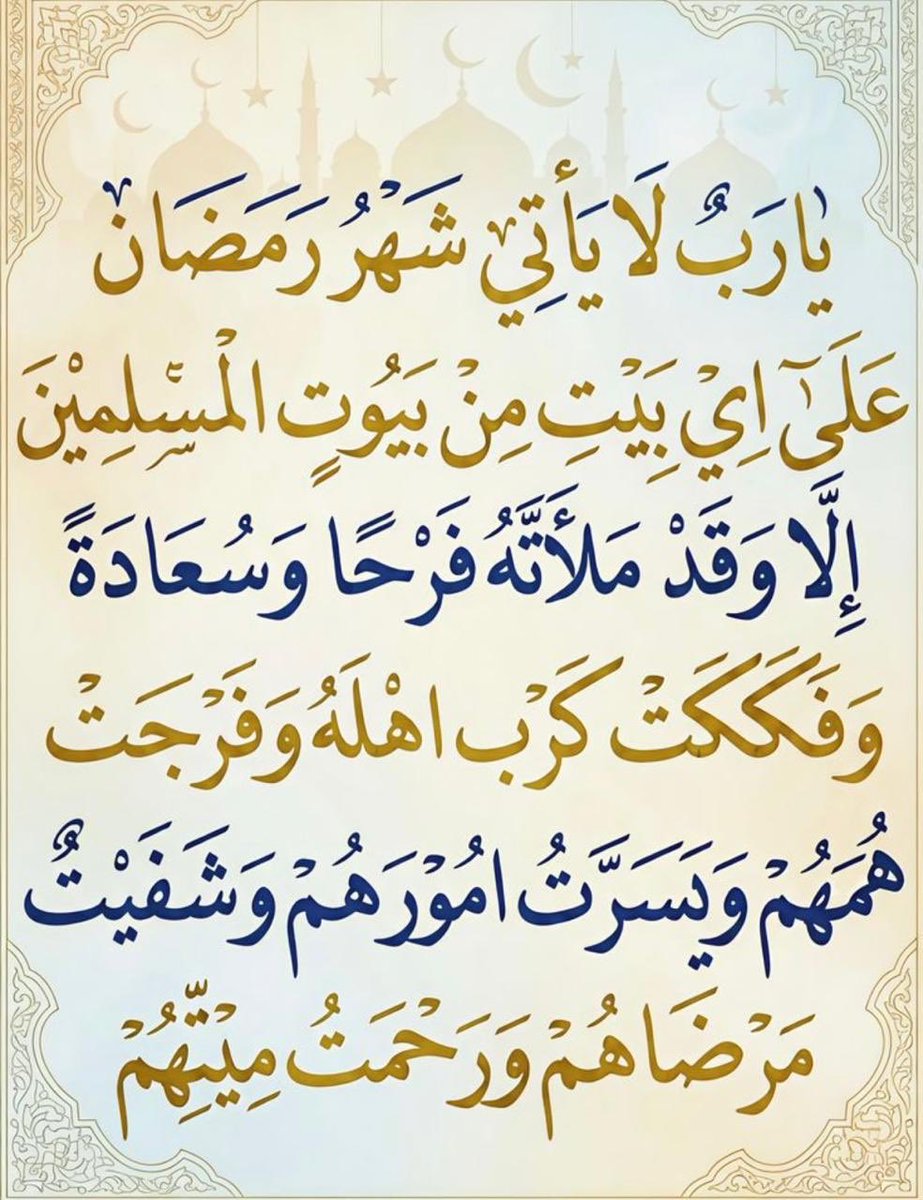 يَارَبٌ لَا يَأْتِيْ شَهْرُ رَمَضَانْ
عَلَىٰٓ اِيْ بِيَْتِ مِنْ بَيُوتٍ الْمسْلِمِيْنَ
إِلَّا وَقَدْ مَلَأَتَّهُ فَرْحًا وَسُعَادَةً
وَفَكَكَتْ كَرْب اهْلَهُ وَفَرْجَتْ
هُمَهُمْ وَيَسَرَّتُ امُوْرَهُمْ وَشَفَيْتٌ
مَرْضَاهُمْ وَرَحْمَتُ مِيْتِّهُمْ